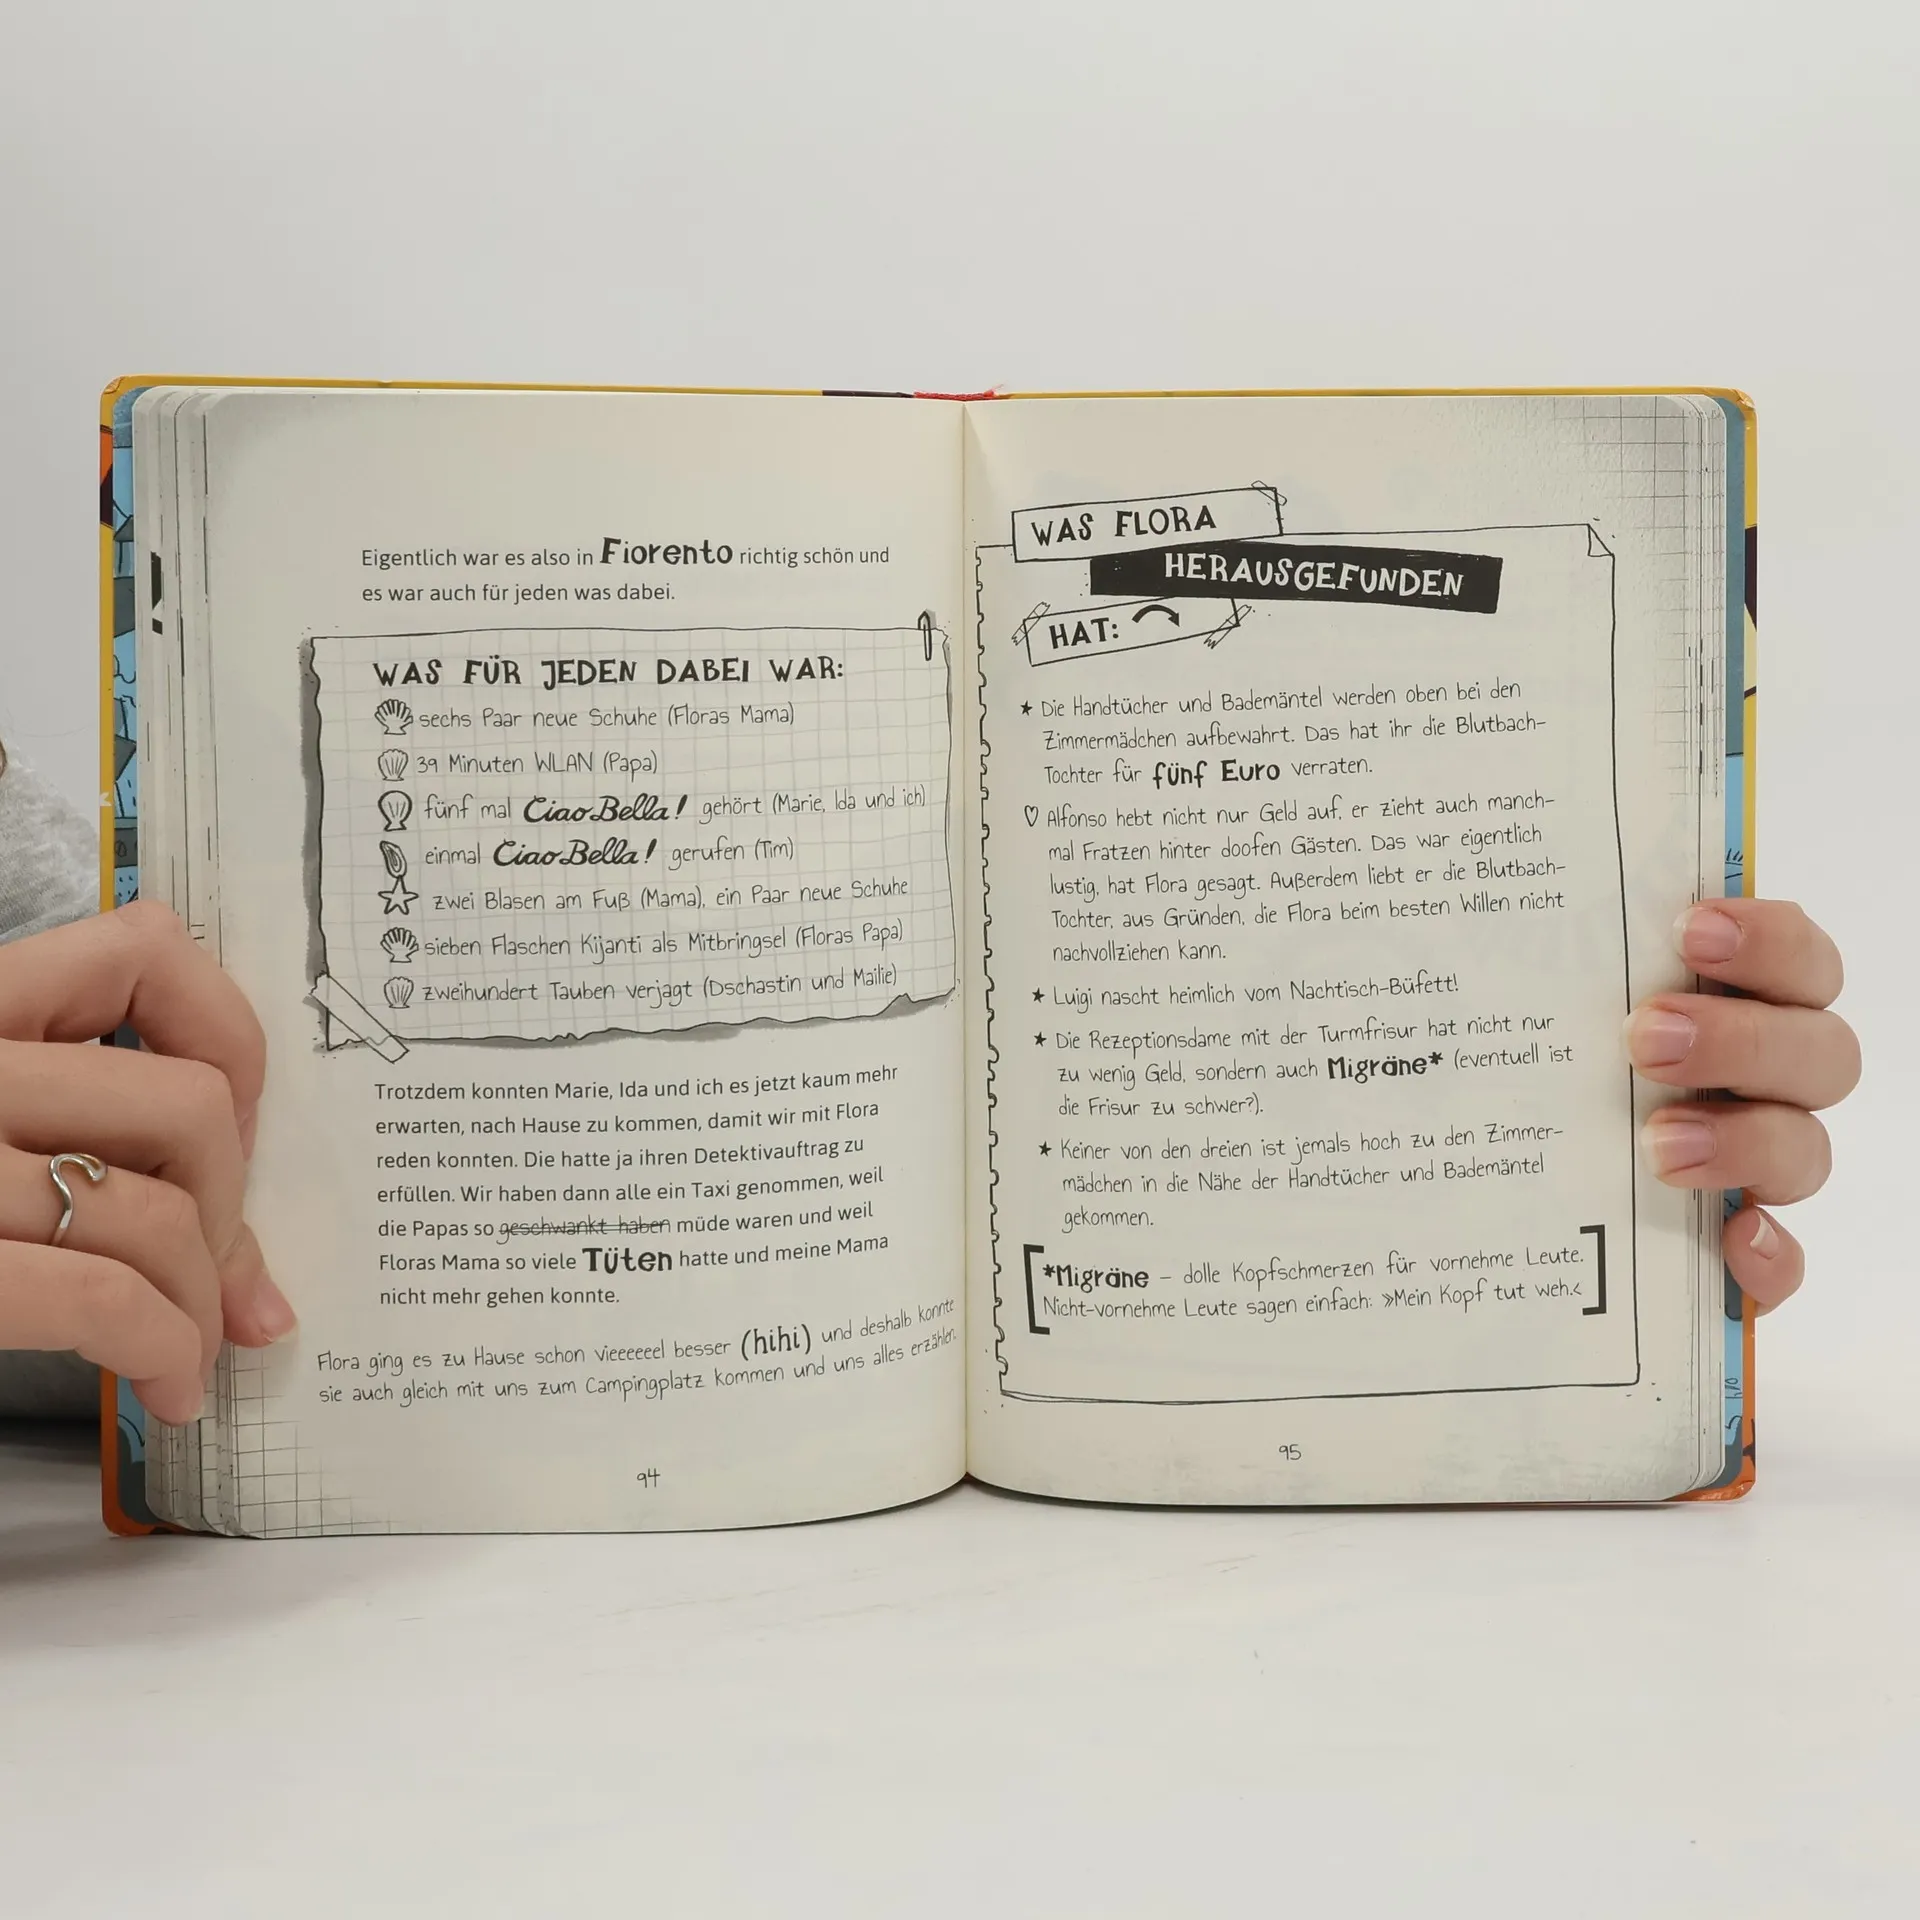 Eigentlich war es also in Fiorento richtig schön und
es war auch für jeden was dabei.
WAS FÜR JEDEN DABEI WAR:
sechs Paar neue Schuhe (Floras Mama)
39 Minuten WLAN (Papa)
fünf mal Ciao Bella! gehört (Marie, Ida und ich)
einmal Ciao Bella! gerufen (Tim)
zwei Blasen am Fuß (Mama), ein Paar neue Schuhe
sieben Flaschen Kijanti als Mitbringsel (Floras Papa)
zweihundert Tauben verjagt (Dschastin und Mailie)
Trotzdem konnten Marie, Ida und ich es jetzt kaum mehr
erwarten, nach Hause zu kommen, damit wir mit Flora
reden konnten. Die hatte ja ihren Detektivauftrag zu
erfüllen. Wir haben dann alle ein Taxi genommen, weil
die Papas so geschwankt haben müde waren und weil
Floras Mama so viele Tüten hatte und meine Mama
nicht mehr gehen konnte.
Flora ging es zu Hause schon vieeeeeel besser (hihi) und deshalb konnte
sie auch gleich mit uns zum Campingplatz kommen und uns alles erzählen.
94
WAS FLORA
HERAUSGEFUNDEN
HAT:
★ Die Handtücher und Bademäntel werden oben bei den
Zimmermädchen aufbewahrt. Das hat ihr die Blutbach-
Tochter für fünf Euro verraten.
♡ Alfonso hebt nicht nur Geld auf, er zieht auch manch-
mal Fratzen hinter doofen Gästen. Das war eigentlich
lustig, hat Flora gesagt. Außerdem liebt er die Blutbach-
Tochter, aus Gründen, die Flora beim besten Willen nicht
nachvollziehen kann.
★ Luigi nascht heimlich vom Nachtisch-Büfett!
★ Die Rezeptionsdame mit der Turmfrisur hat nicht nur
zu wenig Geld, sondern auch Migräne* (eventuell ist
die Frisur zu schwer?).
★ Keiner von den dreien ist jemals hoch zu den Zimmer-
mädchen in die Nähe der Handtücher und Bademäntel
gekommen.
*Migräne – dolle Kopfschmerzen für vornehme Leute.
Nicht-vornehme Leute sagen einfach: »Mein Kopf tut weh.<
95